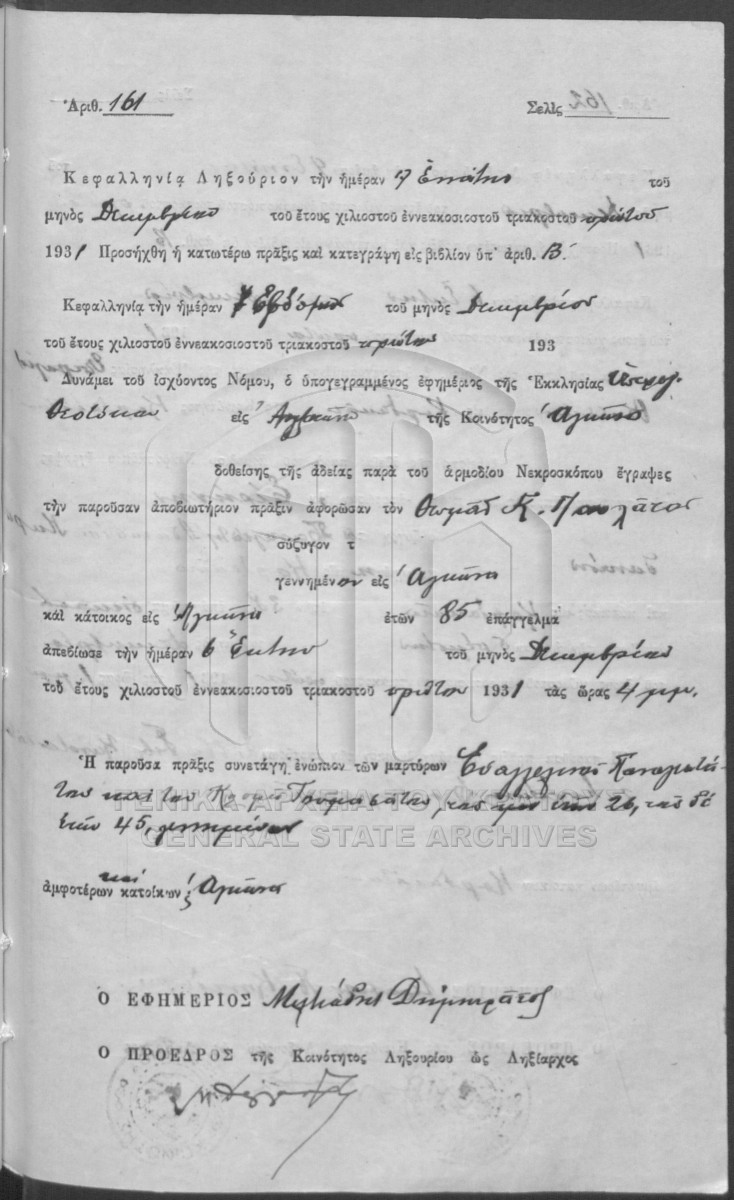 Ἀριθ. 161 Σελὶς 162
Κεφαλληνίᾳ Ληξούριον τὴν ἡμέραν 9 Ἐννάτην τοῦ
μηνὸς Δεκεμβρίου τοῦ ἔτους χιλιοστοῦ ἐννεακοσιοστοῦ τριακοστοῦ πρώτου
1931 Προσήχθη ἡ κατωτέρω πρᾶξις καὶ κατεγράφη εἰς βιβλίον ὑπ' ἀριθ. Β.
Κεφαλληνίᾳ τὴν ἡμέραν 7 Ἑβδόμην τοῦ μηνὸς Δεκεμβρίου
τοῦ ἔτους χιλιοστοῦ ἐννεακοσιοστοῦ τριακοστοῦ πρώτου 193
Δυνάμει τοῦ ἰσχύοντος Νόμου, ὁ ὑπογεγραμμένος ἐφημέριος τῆς Ἐκκλησίας Ὑπεραγ.
Θεοτόκου εἰς Ἀγκῶνα τῆς Κοινότητος Ἀγκῶνα
δοθείσης τῆς ἀδείας παρὰ τοῦ ἁρμοδίου Νεκροσκόπου ἔγραψες
τὴν παροῦσαν ἀποβιωτήριον πρᾶξιν ἀφορῶσαν τὸν Θωμᾶν Κ. Παυλᾶτον
σύζυγον τ
γεννημένον εἰς Ἀγκῶνα
καὶ κάτοικος εἰς Ἀγκῶνα ἐτῶν 85 ἐπάγγελμα
ἀπεβίωσε τὴν ἡμέραν 6 Ἕκτην τοῦ μηνὸς Δεκεμβρίου
τοῦ ἔτους χιλιοστοῦ ἐννεακοσιοστοῦ τριακοστοῦ πρώτου 1931 τὰς ὥρας 4 μ.μ.
Ἡ παροῦσα πρᾶξις συνετάγη ἐνώπιον τῶν μαρτύρων Εὐαγγελινοῦ
καὶ του ἐτῶν 26, τοῦ δὲ
ἐτῶν 45, γεννημένων
ἀμφοτέρων καὶ κατοίκων Ἀγκῶνα
Ο ΕΦΗΜΕΡΙΟΣ Μιλτιάδης Δημηρᾶτος
Ο ΠΡΟΕΔΡΟΣ τῆς Κοινότητος Ληξουρίου ὡς Ληξίαρχος
ΓΕΝΙΚΑ ΑΡΧΕΙΑ ΤΟΥ ΚΡΑΤΟΥΣ
GENERAL STATE ARCHIVES